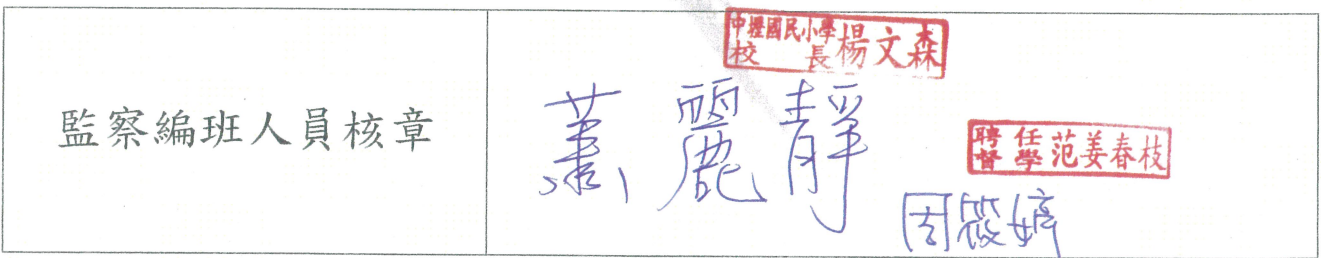 監察編班人員核章
中壢國民小學
校長楊文森
蕭麗靜
聘任
督學范姜春枝
周筱婷